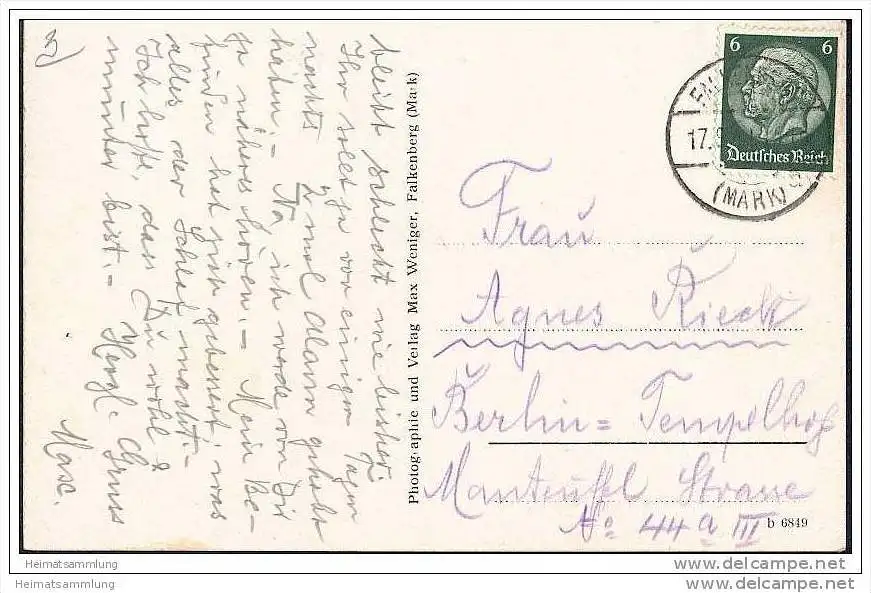 2)
bleibt schlecht wie bisher
Ihr sollt ja vor einigen Tagen
nachts 2 mal Alarm gehabt
haben. – Na, ich werde von Dir
ja näheres hören. – Mein Be-
finden hat sich gebessert, was
alles der Schlaf macht. –
Ich hoffe, dass Du wohl &
munter bist. – Herzl. Gruss
Max.
Photographie und Verlag Max Weniger, Falkenberg (Mark)
6 6
Deutsches Reich
17.
(MARK)
Frau
Agnes Rieck
Berlin = Tempelhof
Manteuffel Strasse
No 44a III
b 6849
Heimatsammlung
www.delcampe.net
Heimatsammlung
www.delcampe.net